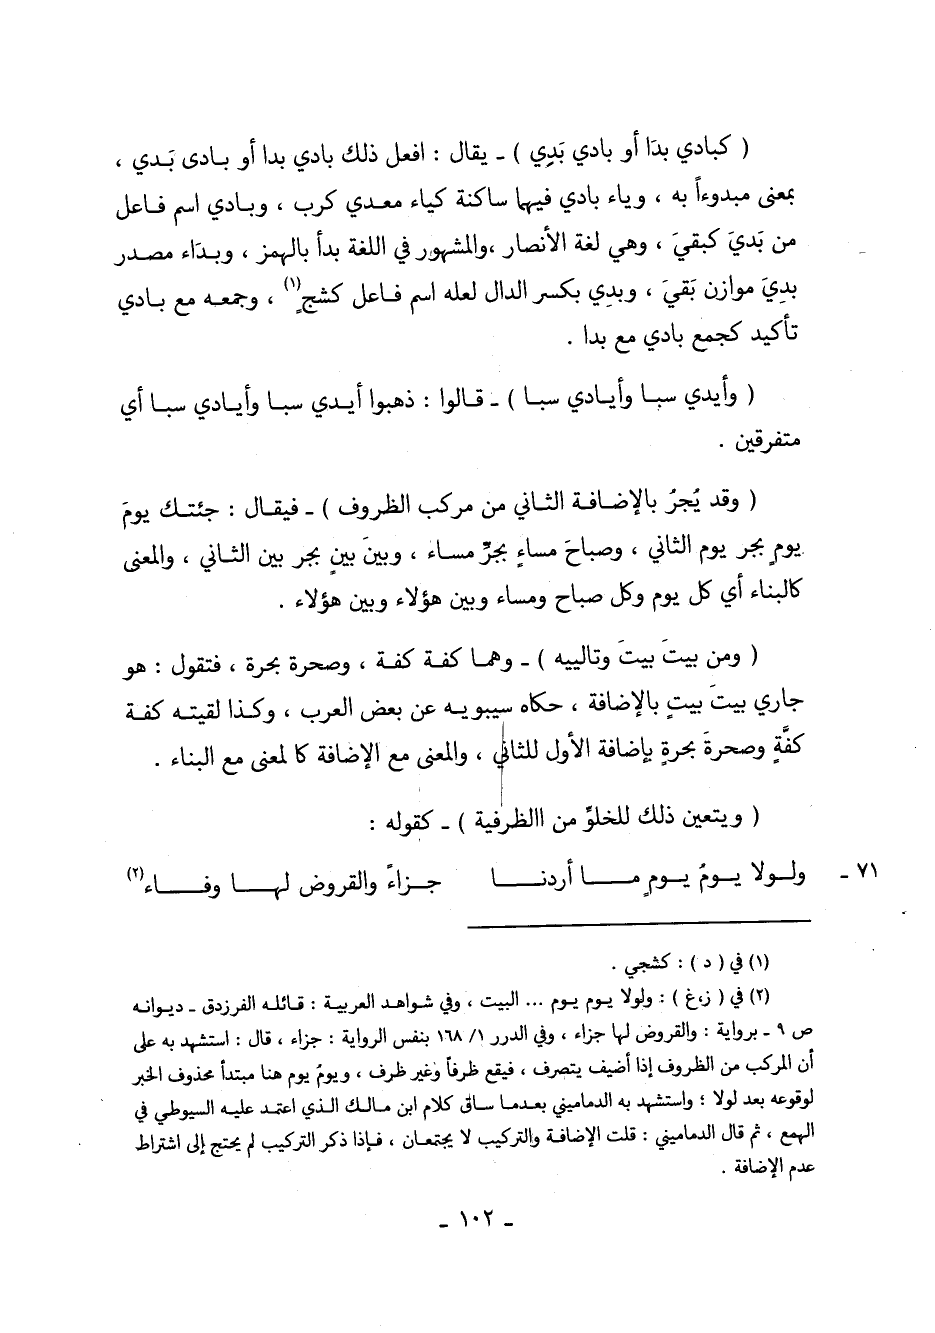 ( كبادي بدَا أو بادي بَدِي ) ـ يقال : افعل ذلك بادي بدا أو بادى بَدي ،
بمعنى مبدوءاً به ، وياء بادي فيها ساكنة كياء معدي كرب ، وبادي اسم فاعل
من بَديَ كبقيَ ، وهي لغة الأنصار ،والمشهور في اللغة بدأ بالهمز ، وبدَاء مصدر
بدِيَ موازن بَقيَ ، وبدِي بكسر الدال لعله اسم فاعل كشجٍ(١) ، وجمعه مع بادي
تأكيد كجمع بادي مع بدا .
( وأيدي سبا وأيادي سبا ) ـ قالوا : ذهبوا أيدي سبا وأيادي سبا أي
متفرقين .
( وقد يُجرُ بالإضافة الثاني من مركب الظروف ) ـ فيقال : جئتك يومَ
يومٍ بجر يوم الثاني ، وصباحَ مساءٍ بجرِّ مساء ، وبينَ بينٍ بجر بين الثاني ، والمعنى
كالبناء أي كل يوم وكل صباح ومساء وبين هؤلاء وبين هؤلاء .
( ومن بيتَ بيتَ وتالييه ) ـ وهما كفة كفة ، وصحرة بحرة ، فتقول : هو
جاري بيتَ بيتٍ بالإضافة ، حكاه سيبويه عن بعض العرب ، وكذا لقيته كفة
كفَّةٍ وصحرةَ بحرةٍ بإضافة الأول للثاني ، والمعنى مع الإضافة كالمعنى مع البناء .
( ويتعين ذلك للخلوِّ من االظرفية ) ـ كقوله :
٧١ ـ ولولا يومُ يومٍ ما أردنا جزاءً والقروض لها وفاء(٢)
(١) في ( د ) : كشجي .
(٢) في ( ز،غ ) : ولولا يوم يوم ... البيت ، وفي شواهد العربية : قائله الفرزدق ـ ديوانه
ص ٩ ـ برواية : والقروض لها جزاء ، وفي الدرر ١/ ١٦٨ بنفس الرواية : جزاء ، قال : استشهد به على
أن المركب من الظروف إذا أضيف يتصرف ، فيقع ظرفاً وغير ظرف ، ويومُ يوم هنا مبتدأ محذوف الخبر
لوقوعه بعد لولا ؛ واستشهد به الدماميني بعدما ساق كلام ابن مالك الذي اعتمد عليه السيوطي في
الهمع ، ثم قال الدماميني : قلت الإضافة والتركيب لا يجتمعان ، فإذا ذكر التركيب لم يحتج إلى اشتراط
عدم الإضافة .
ـ ١٠٢ ـ